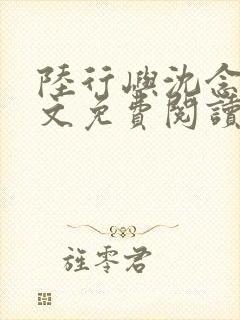 陸行嶼沈念
文免費閱讀
旌零君